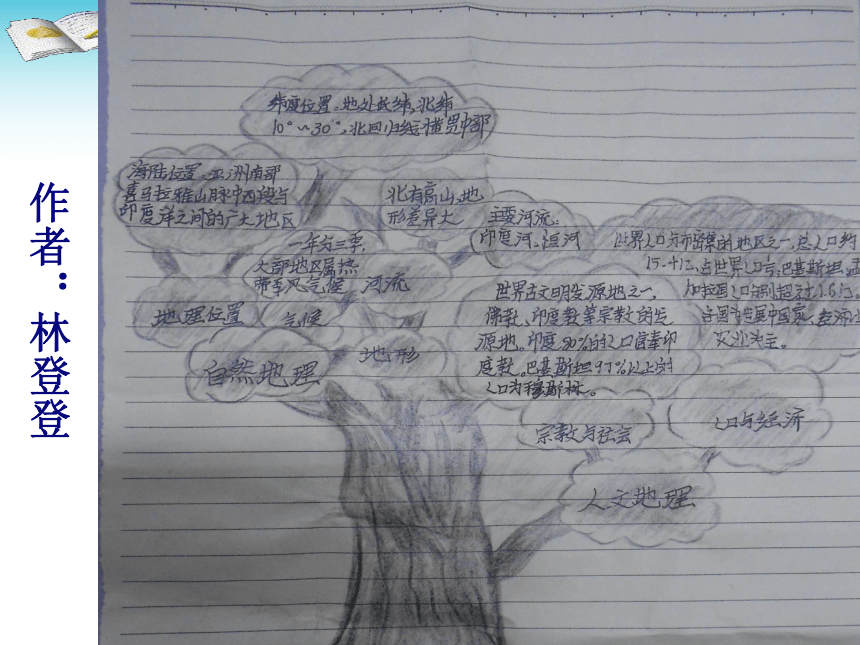 作者：林登登
纬度位置：地处低纬，北纬
10°~30°，北回归线横贯中部
海陆位置：亚洲南部
喜马拉雅山脉中西段与
印度洋之间的广大地区
北有高山，地
形差异大
主要河流：
印度河、恒河
一年分三季，
大部地区属热
带季风气候
河流
地理位置
气候
地形
自然地理
世界古文明发源地之一，
佛教、印度教等宗教的发
源地。印度80%的人口信奉印
度教。巴基斯坦97%以上的
人口为穆斯林。
世界人口分布密集的地区之一，总人口约
15.4亿，占世界人口；巴基斯坦、孟
加拉国人口分别超过1.6亿，
各国为发展中国家，经济以
农业为主。
宗教与社会
人口与经济
人文地理